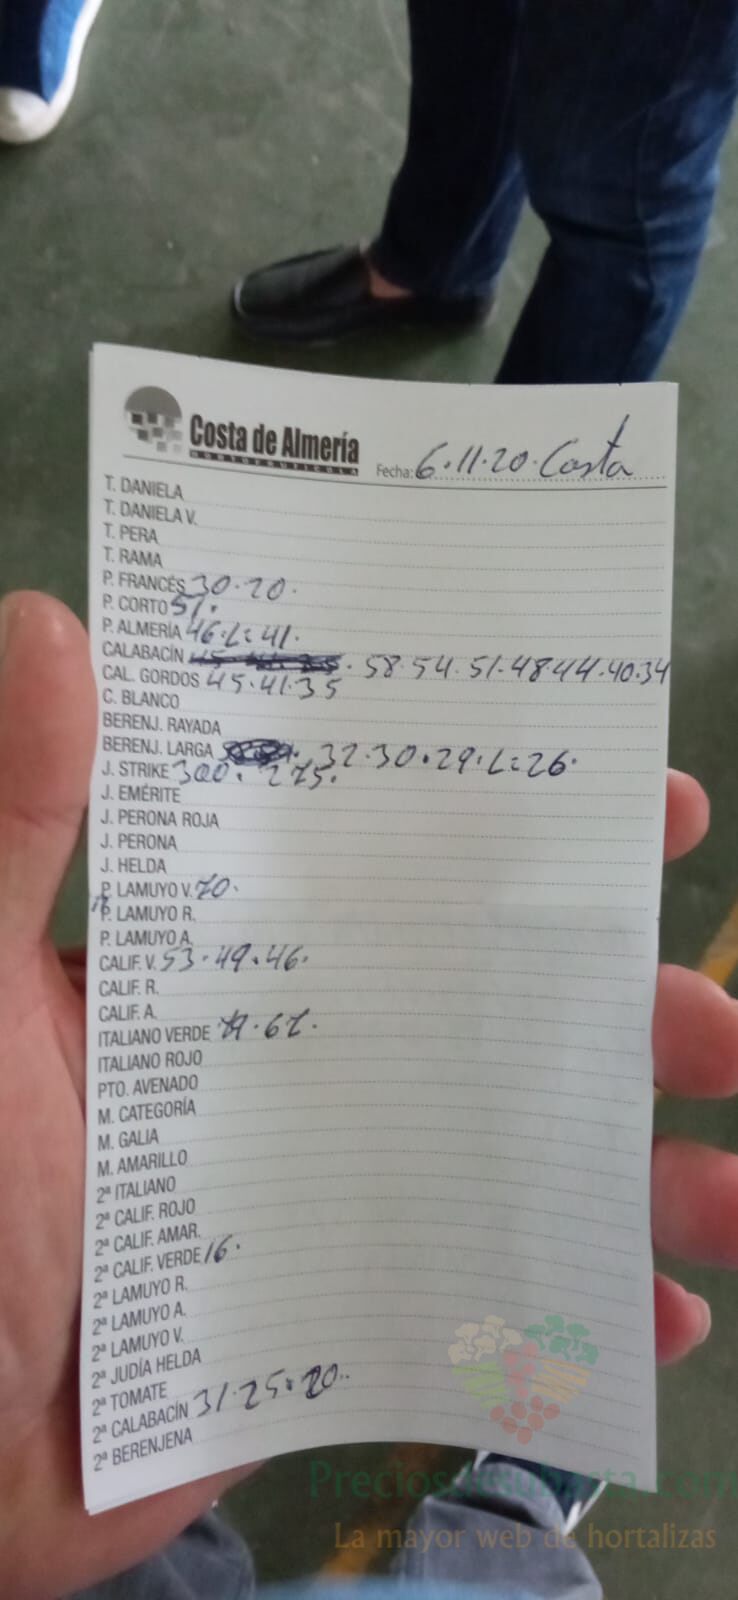 Costa de Almería
HORTOFRUTÍCOLA
Fecha: 6.11.20. Costa
T. DANIELA
T. DANIELA V.
T. PERA
T. RAMA
P. FRANCÉS 30.20.
P. CORTO 51.
P. ALMERÍA 46.L:41.
CALABACÍN . 58.54.51.48.44.40.34
CAL. GORDOS 45.41.35
C. BLANCO
BERENJ. RAYADA
BERENJ. LARGA 32.30.29.L:26.
J. STRIKE 300. 275.
J. EMÉRITE
J. PERONA ROJA
J. PERONA
J. HELDA
P. LAMUYO V. 70.
P. LAMUYO R.
P. LAMUYO A.
CALIF. V. 53.49.46.
CALIF. R.
CALIF. A.
ITALIANO VERDE
ITALIANO ROJO
PTO. AVENADO
M. CATEGORÍA
M. GALIA
M. AMARILLO
2ª ITALIANO
2ª CALIF. ROJO
2ª CALIF. AMAR.
2ª CALIF. VERDE 16.
2ª LAMUYO R.
2ª LAMUYO A.
2ª LAMUYO V.
2ª JUDÍA HELDA
2ª TOMATE
2ª CALABACÍN 31.25.20.
2ª BERENJENA
Preciosdesubasta.com
La mayor web de hortalizas